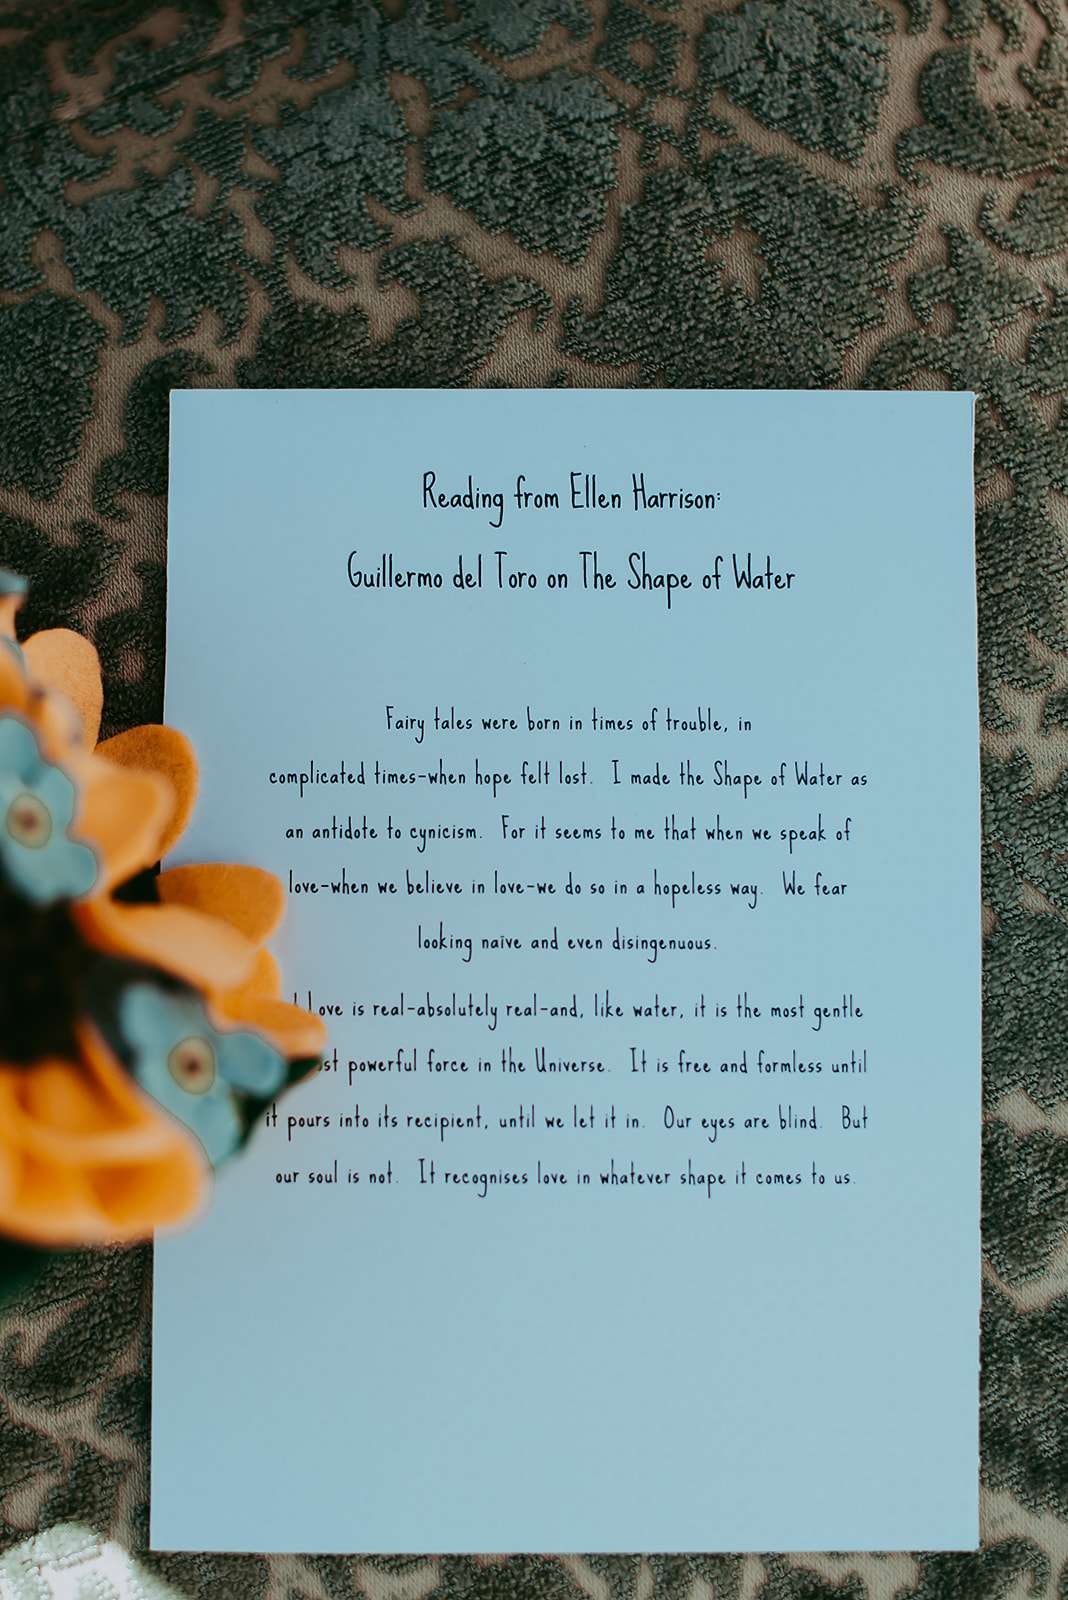 Reading from Ellen Harrison:
Guillermo del Toro on The Shape of Water
Fairy tales were born in times of trouble, in
complicated times-when hope felt lost. I made the Shape of Water as
an antidote to cynicism. For it seems to me that when we speak of
love-when we believe in love-we do so in a hopeless way. We fear
looking naïve and even disingenuous.
Love is real-absolutely real-and, like water, it is the most gentle
powerful force in the Universe. It is free and formless until
it pours into its recipient, until we let it in. Our eyes are blind. But
our soul is not. It recognises love in whatever shape it comes to us.